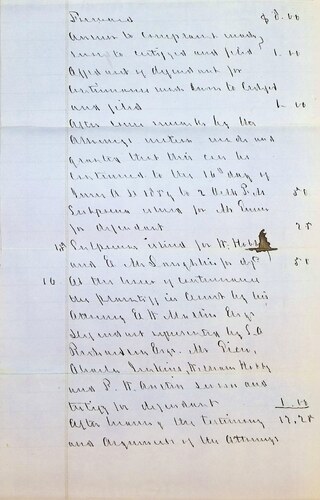 Forward $8.00
Answer to complaint made,
sworn to certified and filed 1.00
Affidavit of defendant for
continuance made sworn to
and filed 1.00
After some remarks by the
Attorneys motion made and
granted that this case be
continued to the 16th day of
June A D 1859 to 2 Oclk P.M 50
Subpoena issued for Mr
for defendant 25
15 Subpoenas issued for W. Hobbs
and E McLaughlin for dft 50
16 At the time of continuance
the plaintiff in Court by his
Attorney E W Martin Esqr
Defendant represented by
Richardson Esqr. Mr
Jenkins, William Hobbs
and P. W. Austin sworn and
testify for defendant 1.00
After hearing the testimony 12,25
and Arguments of the Attorneys